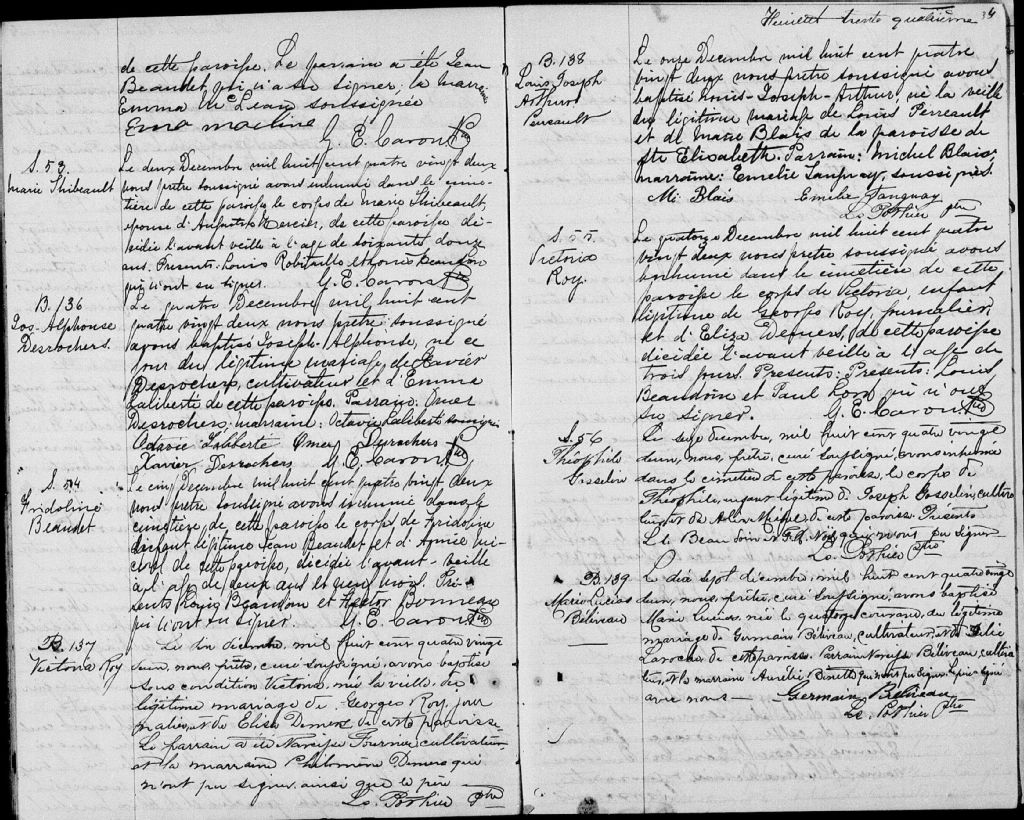 de cette paroisse. Le parrain a été Jean
Beaudet qui n'a su signer; la marraine
Emma McLean soussignée
G. E. Caron Ptre
S. 53
Marie Thibeault
Le deux Decembre mil huit cent quatre vingt deux
nous prêtre soussigné avons inhumé dans le cime-
tière de cette paroisse le corps de Marie Thibeault,
épouse d' Mercier, de cette paroisse dé-
cidée l'avant veille à l'age de soixante douze
ans. Presents: Louis Robitaille et Louis Beaudoin
qui n'ont su signer. G. E. Caron Ptre
B. 136
Jos-Alphonse
Desrochers.
Le quatre Decembre mil huit cent
quatre vingt deux nous prêtre soussigné
avons baptisé Joseph-Alphonse, né ce
jour du légitime mariage de Xavier
Desrochers, cultivateur et d'Emma
Laliberté de cette paroisse. Parrain: Omer
Desrochers; marraine: Octavie Laliberté soussignés
Octavie Laliberté Omer Desrochers
Xavier Desrochers G. E. Caron Ptre
S. 54
Fridoline
Beaudet
Le cinq Decembre mil huit cent quatre vingt deux
nous prêtre soussigné avons inhumé dans le
cimetière de cette paroisse le corps de Fridoline
enfant légitime Jean Beaudet et d'
de cette paroisse, décidée l'avant-veille
à l'age de deux ans et neuf mois. Pré-
sents Louis Beaudoin et Hector Bonneau
qui n'ont su signer. G. E. Caron Ptre
B. 137
Victoria Roy
Le decembre, mil huit cent quatre vingt
deux, nous, prêtre, curé soussigné, avons baptisé
sous condition Victoria, née la veille, du
légitime mariage de Georges Roy, jour
nalier, et de Elisa Demers de cette paroisse
Le parrain a été Narcisse Fournier, cultivateur
et la marraine Philomène Demers qui
n'ont pu signer ainsi que le père
Ls. Pothier Ptre
Feuillet trente quatrième 34
B. 138
Louis Joseph
Arthur
Perreault
Le onze Decembre mil huit cent quatre
vingt deux nous prêtre soussigné avons
baptisé Louis-Joseph-Arthur, né la veille
du légitime mariage de Louis Perreault
et de Marie Blais de la paroisse de
Ste Elisabeth. Parrain: Michel Blais;
marraine: Emelie Tanguay, soussignés.
Mi Blais Emelie Tanguay
Ls Pothier Ptre
S. 55.
Victoria
Roy.
Le quatorze Decembre mil huit cent quatre
vingt deux nous prêtre soussigné avons
inhumé dans le cimetière de cette
paroisse le corps de Victoria, enfant
légitime de Georges Roy, journalier,
et d'Eliza Demers, de cette paroisse
décidée l'avant veille à l'age de
trois jours. Presents: Presents: Louis
Beaudoin et Paul Lord qui n'ont
su signer. G. E. Caron Ptre
S. 56
Théophile
Gosselin
Le seize décembre, mil huit cent quatre vingt
deux, nous, prêtre, curé soussigné, avons inhumé
dans le cimetière de cette paroisse, le corps de
Théophile, enfant légitime de Joseph Gosselin, cultiva
teur, et de de cette paroisse. Présents
Ls. Beaudoin qui n'ont pu signer
Ls. Pothier Ptre
B. 139
Marie Lucias
Béliveau
Le dix sept décembre, mil huit cent quatre vingt
deux, nous, prêtre, curé soussigné, avons baptisé
Marie Lucias, née le quatorze courant, du légitime
mariage de Germain Béliveau, cultivateur, et de
Laroche de cette paroisse. Parrain Béliveau, cultiva
teur, et la marraine Aurélie Binette qui n'ont pu signer. Le père a signé
avec nous — Germain Béliveau
Ls. Pothier Ptre